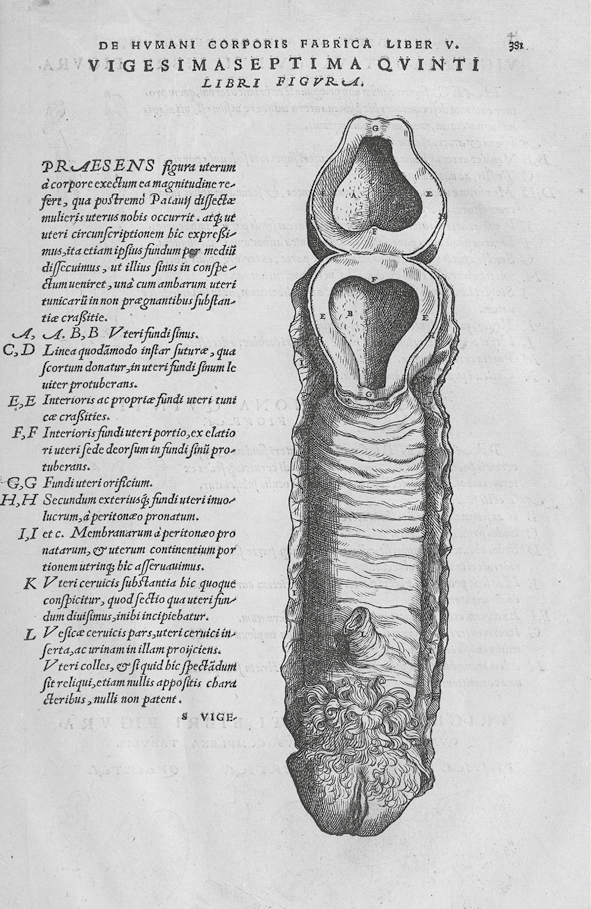 DE HVMANI CORPORIS FABRICA LIBER V. 381
VIGESIMASEPTIMA QVINTI
LIBRI FIGVRA.
PRAESENS figura uterum
à corpore exectum ea magnitudine re-
fert, qua postremò Patauij dissectæ
mulieris uterus nobis occurrit. atq; ut
uteri circunscriptionem hic expreßi-
mus, ita etiam ipsius fundum per mediū
dissecuimus, ut illius sinus in conspe-
ctum ueniret, unà cum ambarum uteri
tunicarū in non prægnantibus substan-
tiæ craßitie.
A, A. B, B Vteri fundi sinus.
C, D Linea quodāmodo instar suturæ, qua
scortum donatur, in uteri fundi sinum le
uiter protuberans.
E, E Interioris ac propriæ fundi uteri tuni
cæ craßities.
F, F Interioris fundi uteri portio, ex elatio
ri uteri sede deorsum in fundi sinū pro-
tuberans.
G, G Fundi uteri orificium.
H, H Secundum exteriusq; fundi uteri inuo-
lucrum, à peritonæo pronatum.
I, I et c. Membranarum à peritonæo pro
natarum, & uterum continentium por
tionem utrinq; hic asseruauimus.
K Vteri ceruicis substantia hic quoque
conspicitur, quod sectio qua uteri fun-
dum diuisimus, inibi incipiebatur.
L Vesicæ ceruicis pars, uteri ceruici in-
serta, ac urinam in illam proijciens.
Vteri colles, & si quid hic spectādum
sit reliqui, etiam nullis appositis chara
cteribus, nulli non patent.
S VIGE-
G
A
E
F
F
E
B
E
G
L